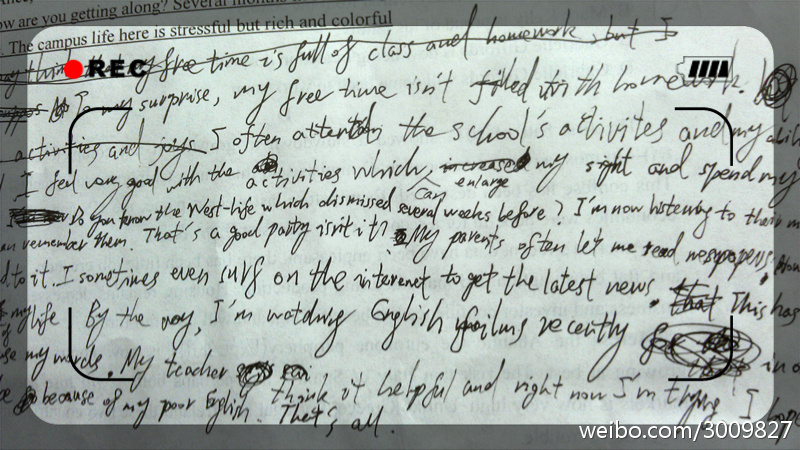 ow are you getting along? Several months
. The campus life here is stressful but rich and colorful
my free time is full of class and homework, but I
REC
To my surprise, my free time isn't filled with homework.
activities and joys I often attend the school's activites and my
I feel very good with the activities which can enlarge my sight and spend my
Do you know the West-life which dismissed several weeks before? I'm now listening to their
an remember them. That's a good party isn't it? My parents often let me read newspapers,
d to it. I sometimes even surf on the internet to get the latest news. That This has
my life By the way, I'm watching English films recently for
use my words. My teacher think it helpful and right now I'm trying
because of my poor English. That's all. I hope
weibo.com/3009827